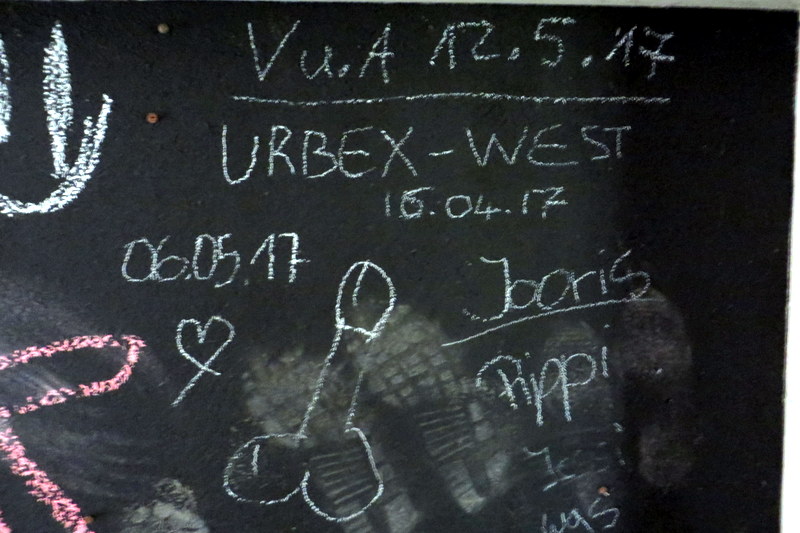 V u. A 12.5.17
URBEX-WEST
16.04.17
06.05.17
Joris
Pippi
was